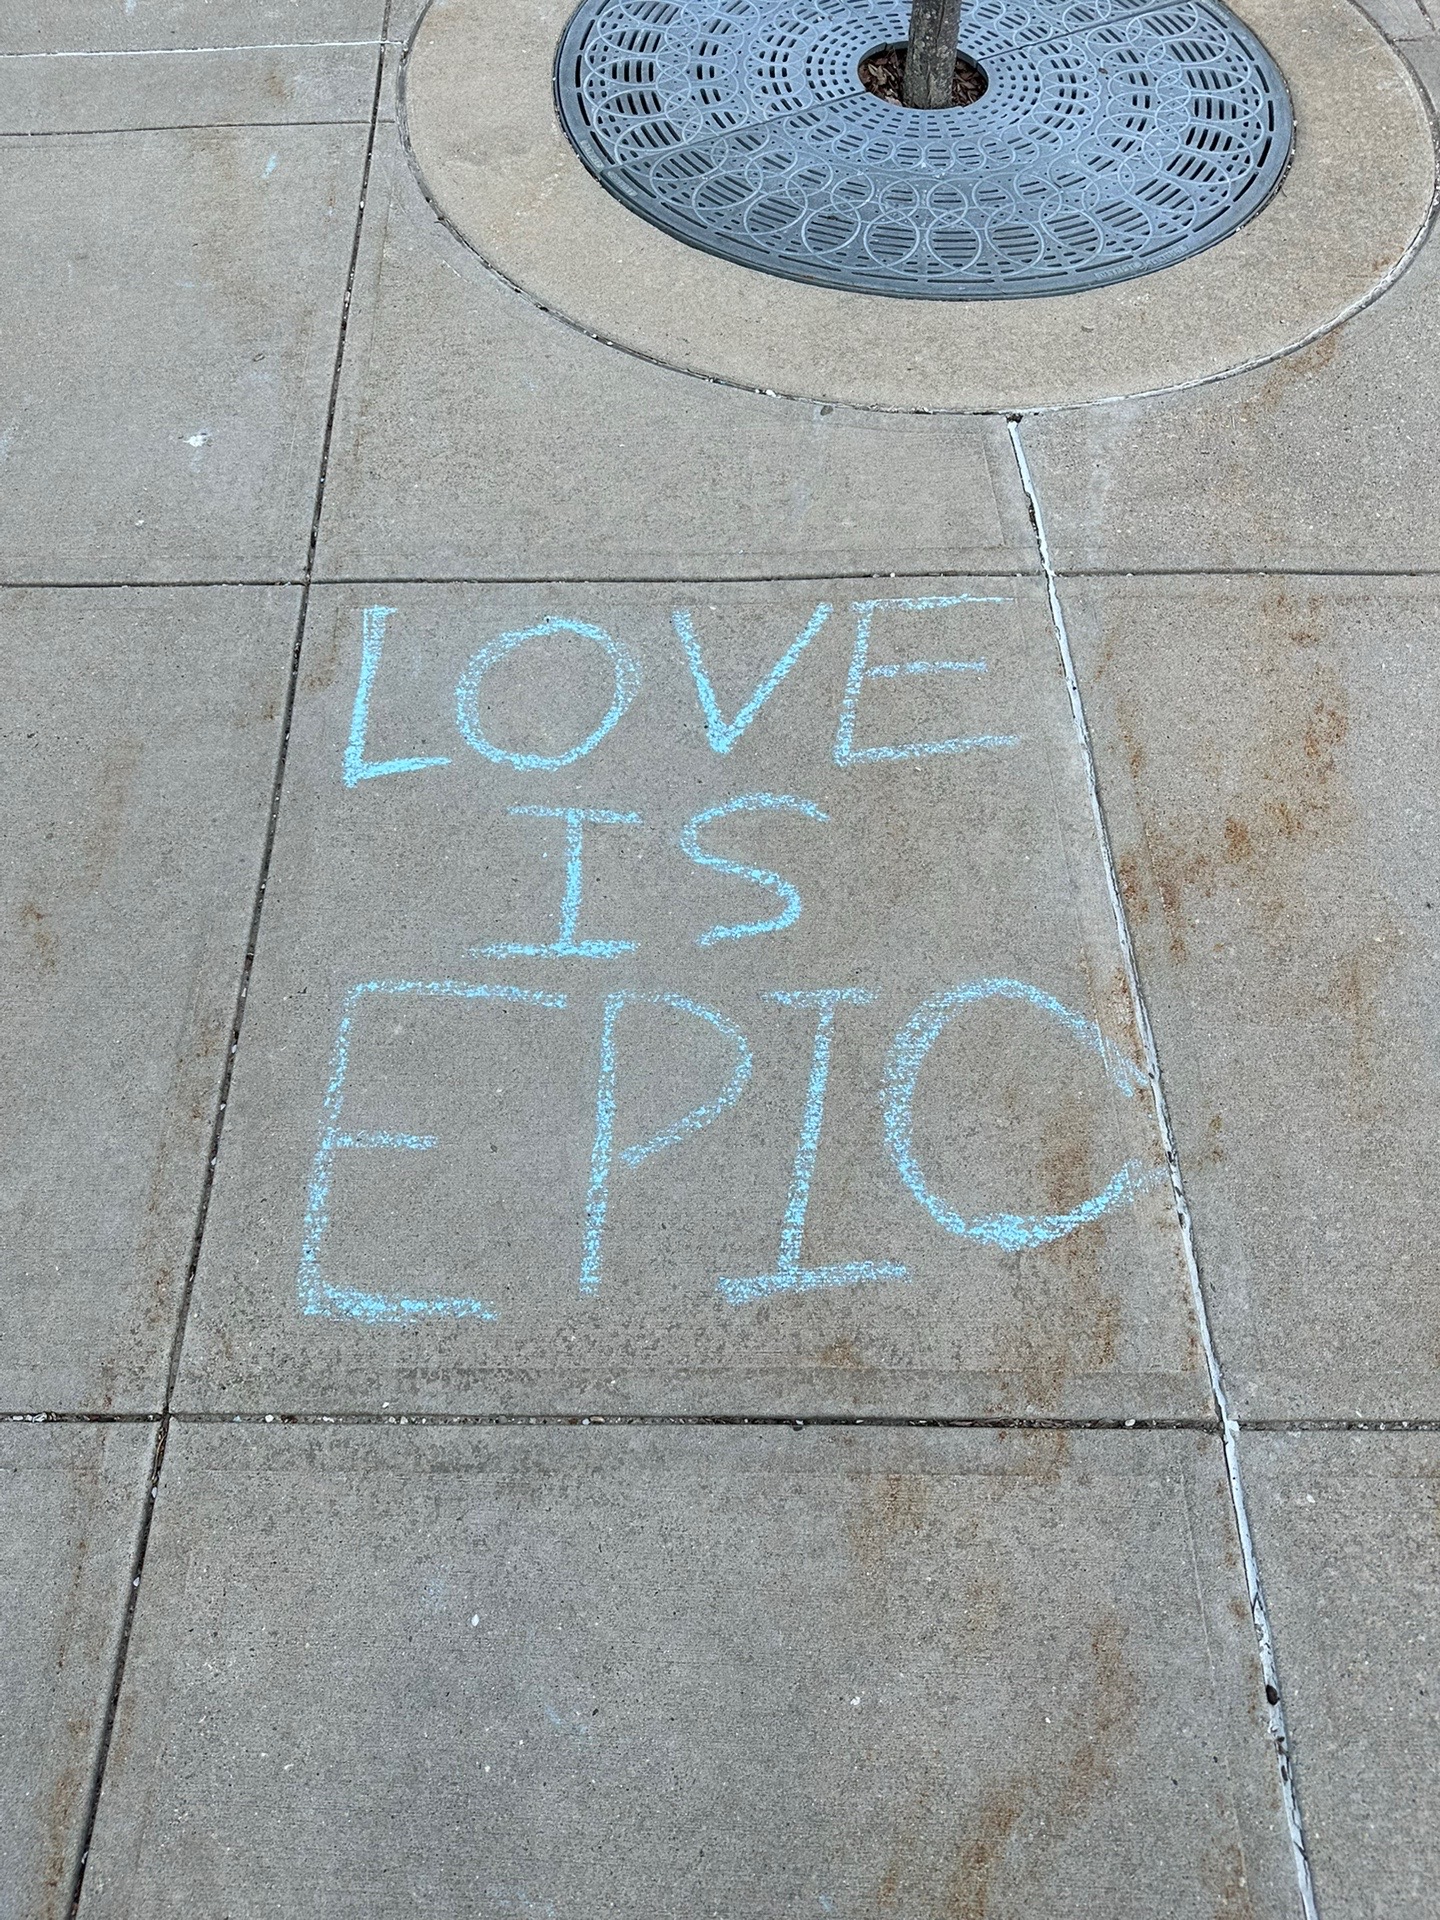 LOVE
IS
EPIC